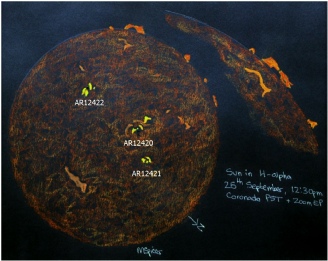 AR12422
AR12420
AR12421
Sun in H-alpha
25th September, 12:30pm
Coronado PST + Zoom EP